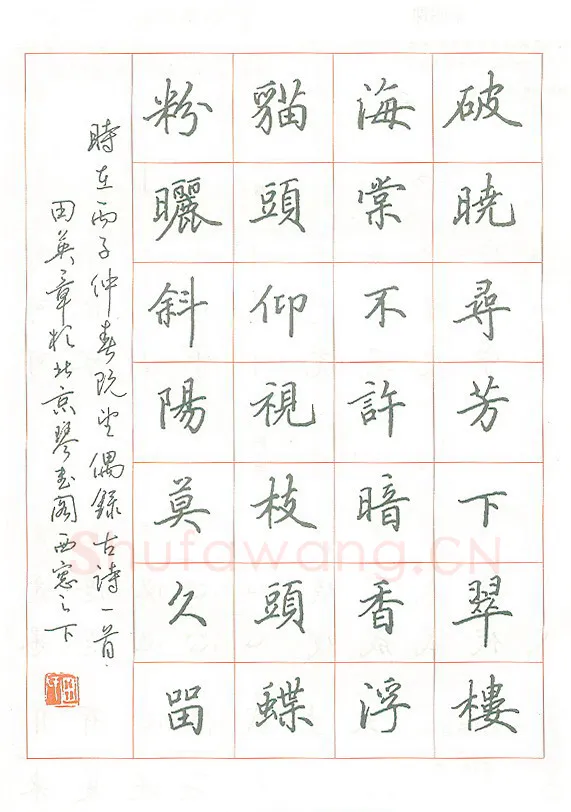 破曉尋芳下翠樓
海棠不許暗香浮
貓頭仰視枝頭蝶
粉曬斜陽莫久留
時在丙子仲春既望偶錄古詩一首
田英章於北京琴書閣西窗之下
Shufawang.CN